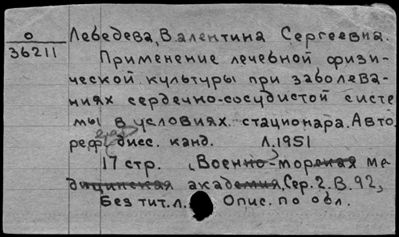 о
36211
Лебедева, Валентина Сергеевна.
Применение лечебной физи-
ческой культуры при заболева-
ниях сердечно-сосудистой систе
мы в условиях стационара. Авто
реф. дисс. канд. Л. 1951
17 стр. (Военно-морская ме
дицинская академия, Сер. 2. В. 92,
Без тит. л. Опис. по обл.